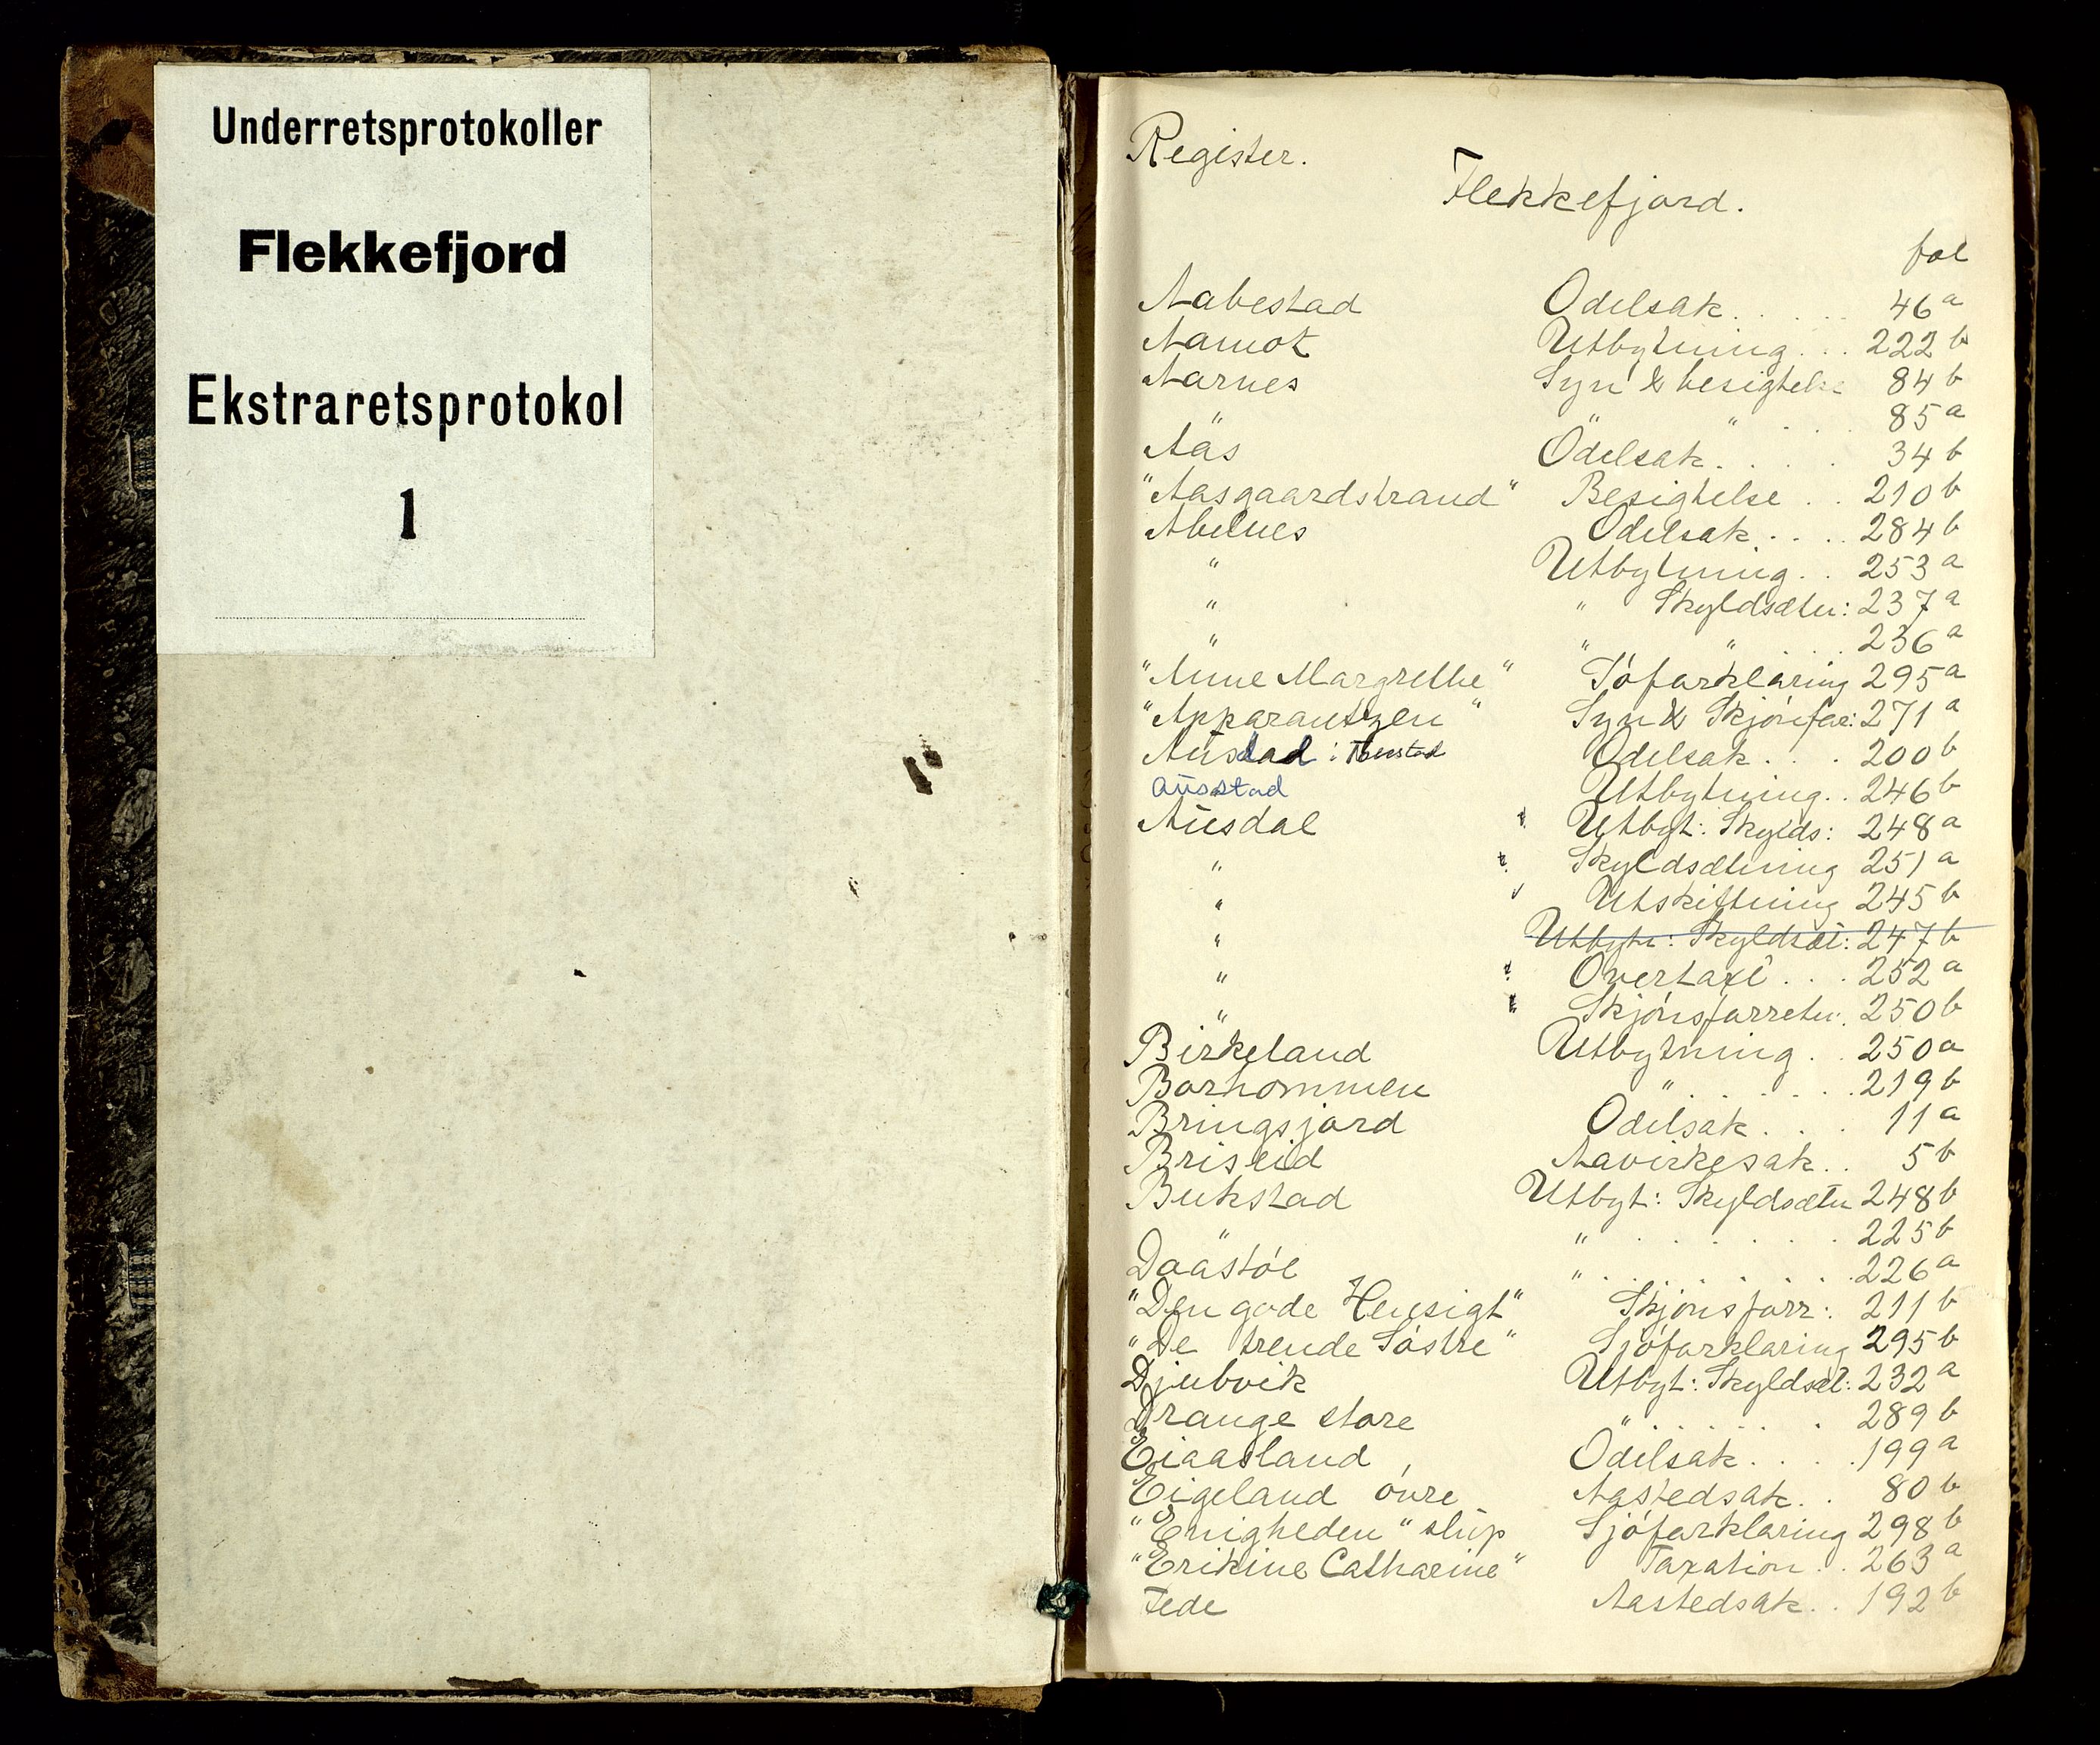 Underretsprotokoller
Flekkefjord
Ekstraretsprotokol
1
Register.
Flekkefjord.
fol
Aabestad Odelsak. . . . . 46 a
Aamot Utbytning. . . 222 b
Aarnes Syn & besigtelse 84 b
" " . . . 85 a
Aas Odelsak. . . . 34 b
"Aasgaardstrand" Besigtelse . . 210 b
Abelnes Odelsak. . . . 284 b
" Utbytning. . . 253 a
" " Skyldsætn: 237 a
" " " . . . 236 a
"Anne Margrethe" Söforklaring 295 a
"Apparantzen" Syn & Skjönfor: 271 a
Austad : Odelsak. . . 200 b
Ausstad Utbytning. . 246 b
Ausdal Utbyt: Skylds: 248 a
" Skyldsætning 251 a
" Utskiftning 245 b
" Utbytn: Skyldsæt: 247 b
" Overtaxt . . . 252 a
" Skjönsforretn: 250 b
Birkeland Utbytning . . 250 a
Borhommen " . . . . . . 219 b
Bringsjord Odelsak. . . 11 a
Briseid Aavirkesak. . 5 b
Bukstad Utbyt: Skyldsætn 248 b
" " . . . . . . 225 b
Daastöl " . . . . . . . 226 a
"Den gode Hensigt" Skjönsforr: 211 b
"De trende Söstre" Sjöforklaring 295 b
Djubvik Utbyt: Skyldsæt: 232 a
Drange store " . . . . . . 289 b
Eiaasland Odelsak. . . . 199 a
Eigeland övre Aastedsak. . 80 b
"Enigheden" slup Sjöforklaring 298 b
"Erikine Catharine" Taxation . . 263 a
Fede Aastedsak. . 192 b